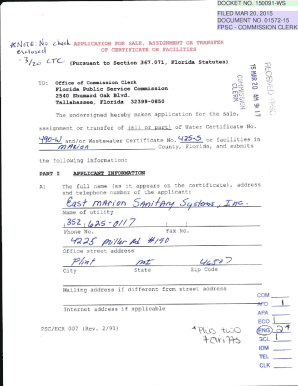 DOCKET NO. 150091-WS
FILED MAR 20, 2015
DOCUMENT NO. 01572-15
FPSC - COMMISSION CLERK
*NOTE: No check enclosed
- 3/20 LTC
APPLICATION FOR SALE, ASSIGNMENT OR TRANSFER
OF CERTIFICATE OR FACILITIES
(Pursuant to Section 367.071, Florida Statutes)
TO: Office of Commission Clerk
Florida Public Service Commission
2540 Shumard Oak Blvd.
Tallahassee, Florida 32399-0850
COMMISSION CLERK
The undersigned hereby makes application for the sale,
assignment or transfer of (all or part) of Water Certificate No.
490-W and/or Wastewater Certificate No. 425-S or facilities in
Marion County, Florida, and submits
the following information:
PART I APPLICANT INFORMATION
A) The full name (as it appears on the certificate), address
and telephone number of the applicant:
East Marion Sanitary Systems, Inc.
Name of utility
352, 625-0117
Phone No. Fax No.
4225 Miller Rd #190
Office street address
Flint MI 48507
City State Zip Code
Mailing address if different from street address
Internet address if applicable
PSC/ECR 007 (Rev. 2/91)
*Plus two
tariffs
COM
AFD 1
APA
ECO 1
ENG 2*
GCL 1
IDM
TEL
CLK